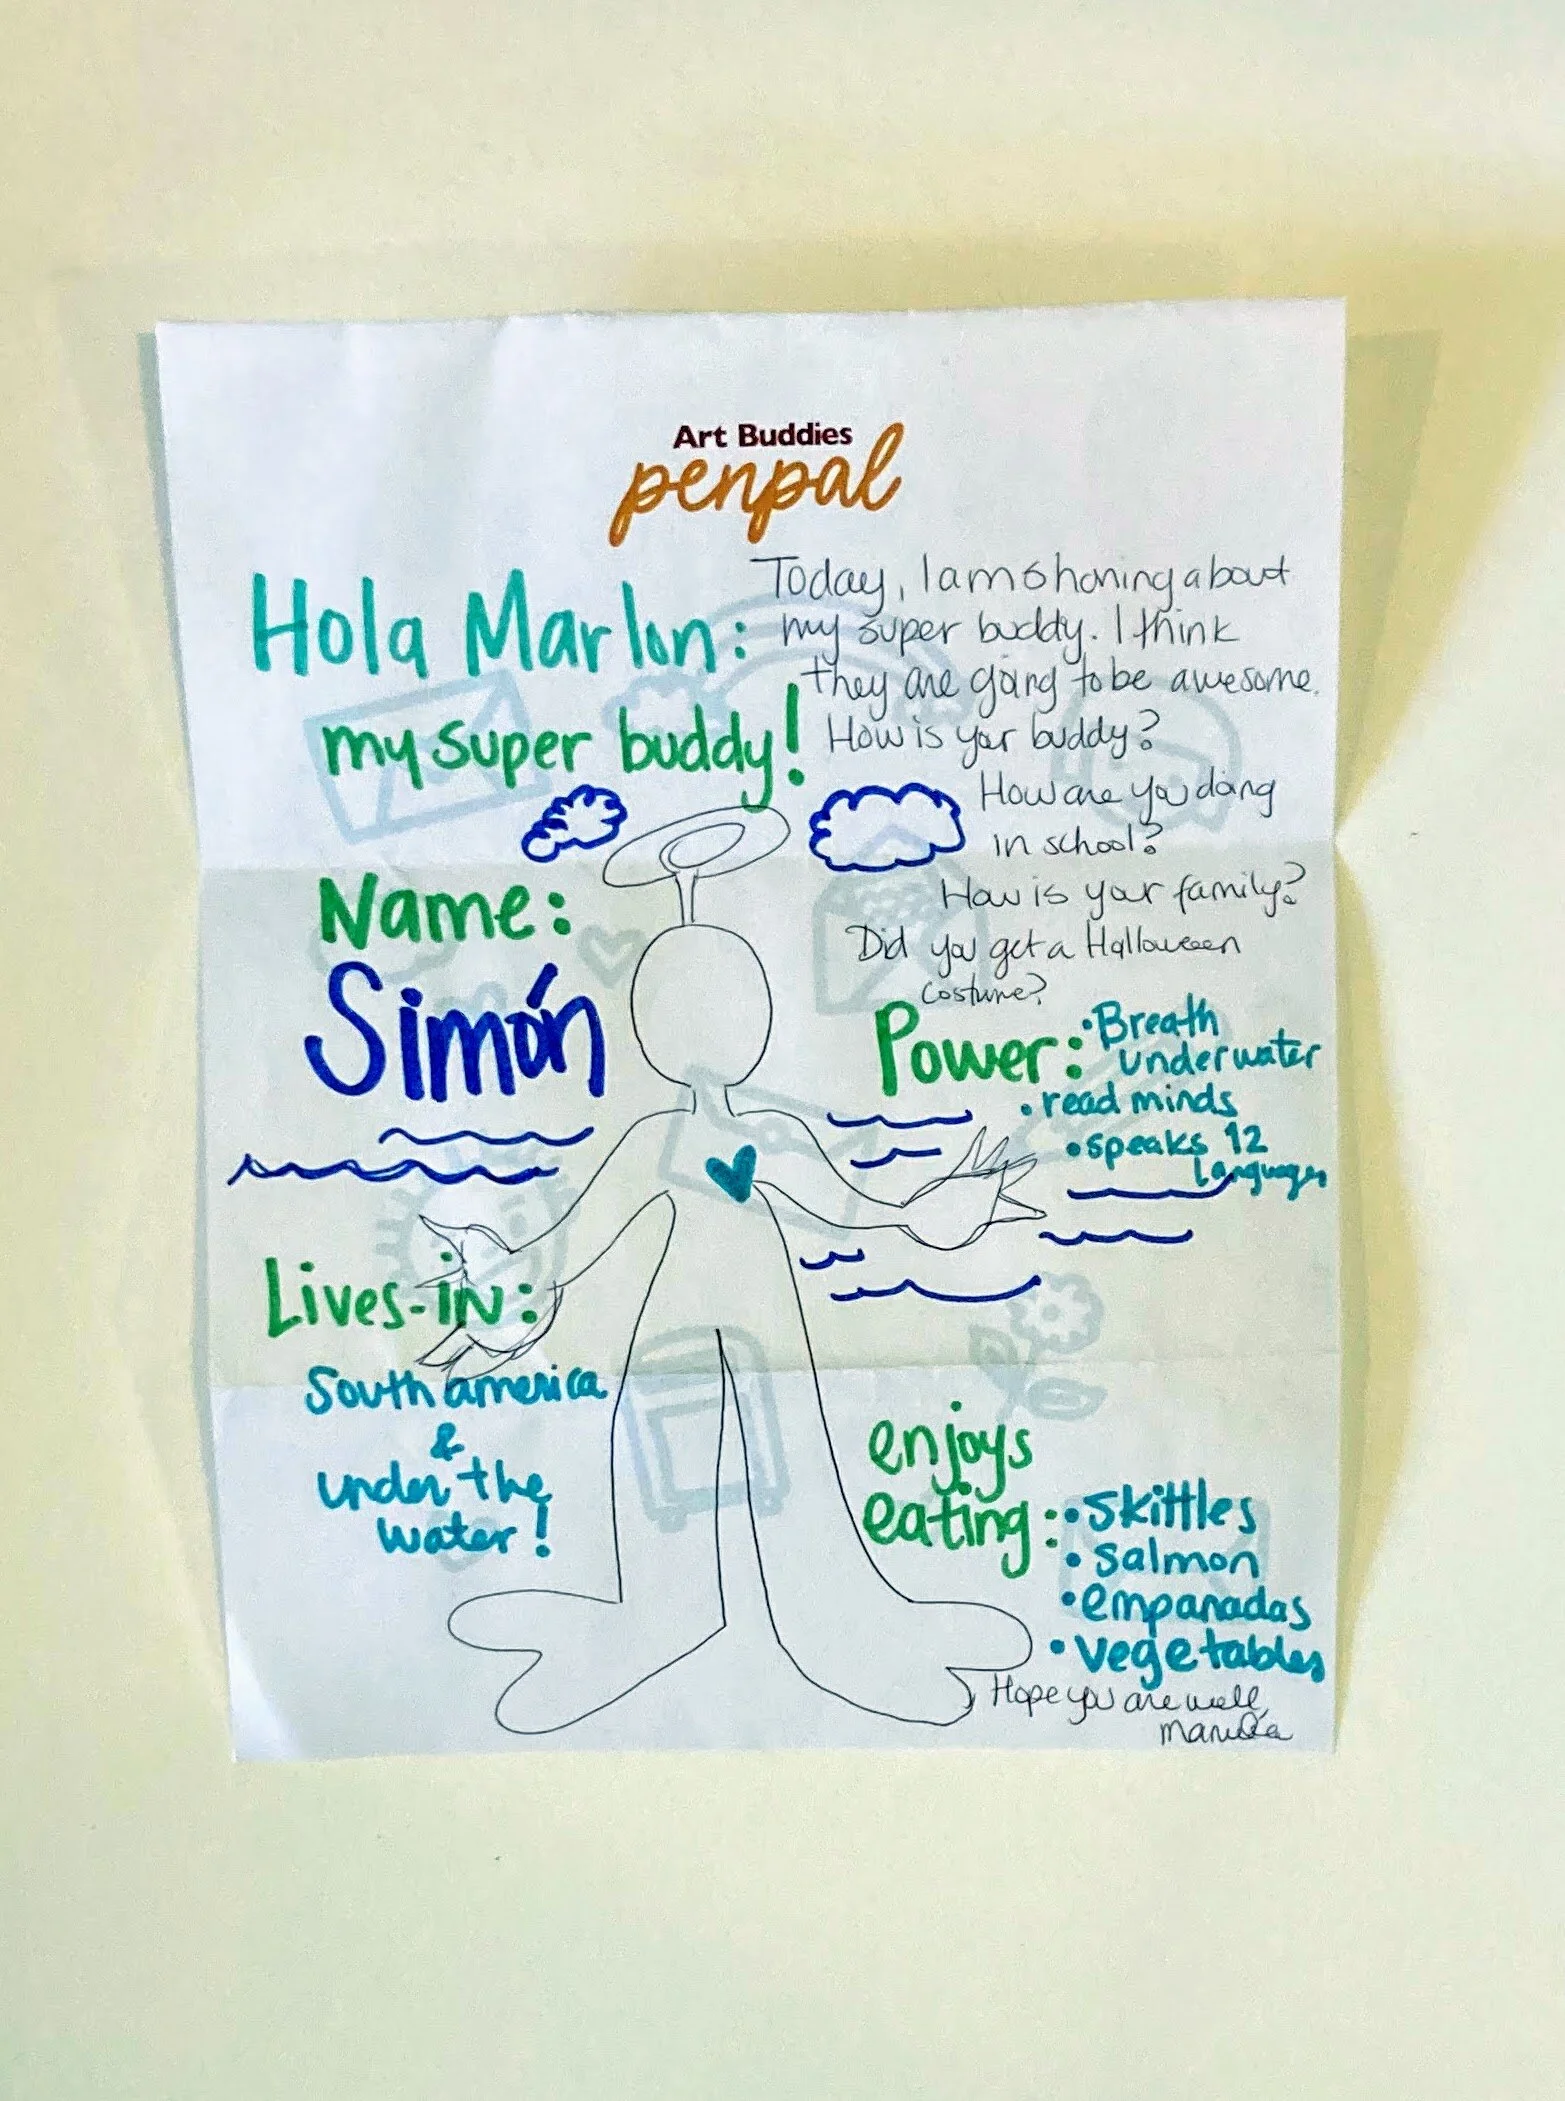 Art Buddies
penpal
Hola Marlon:
Today, I am sharing about
my super buddy. I think
they are going to be awesome.
How is your buddy?
How are you doing
in school?
How is your family?
Did you get a Halloween
costume?
my super buddy!
Name:
Simón
Power:
• Breath
underwater
• read minds
• speaks 12
languages
Lives-in:
South america
&
under the
water!
enjoys
eating:
• Skittles
• salmon
• empanadas
• vegetables
Hope you are well,